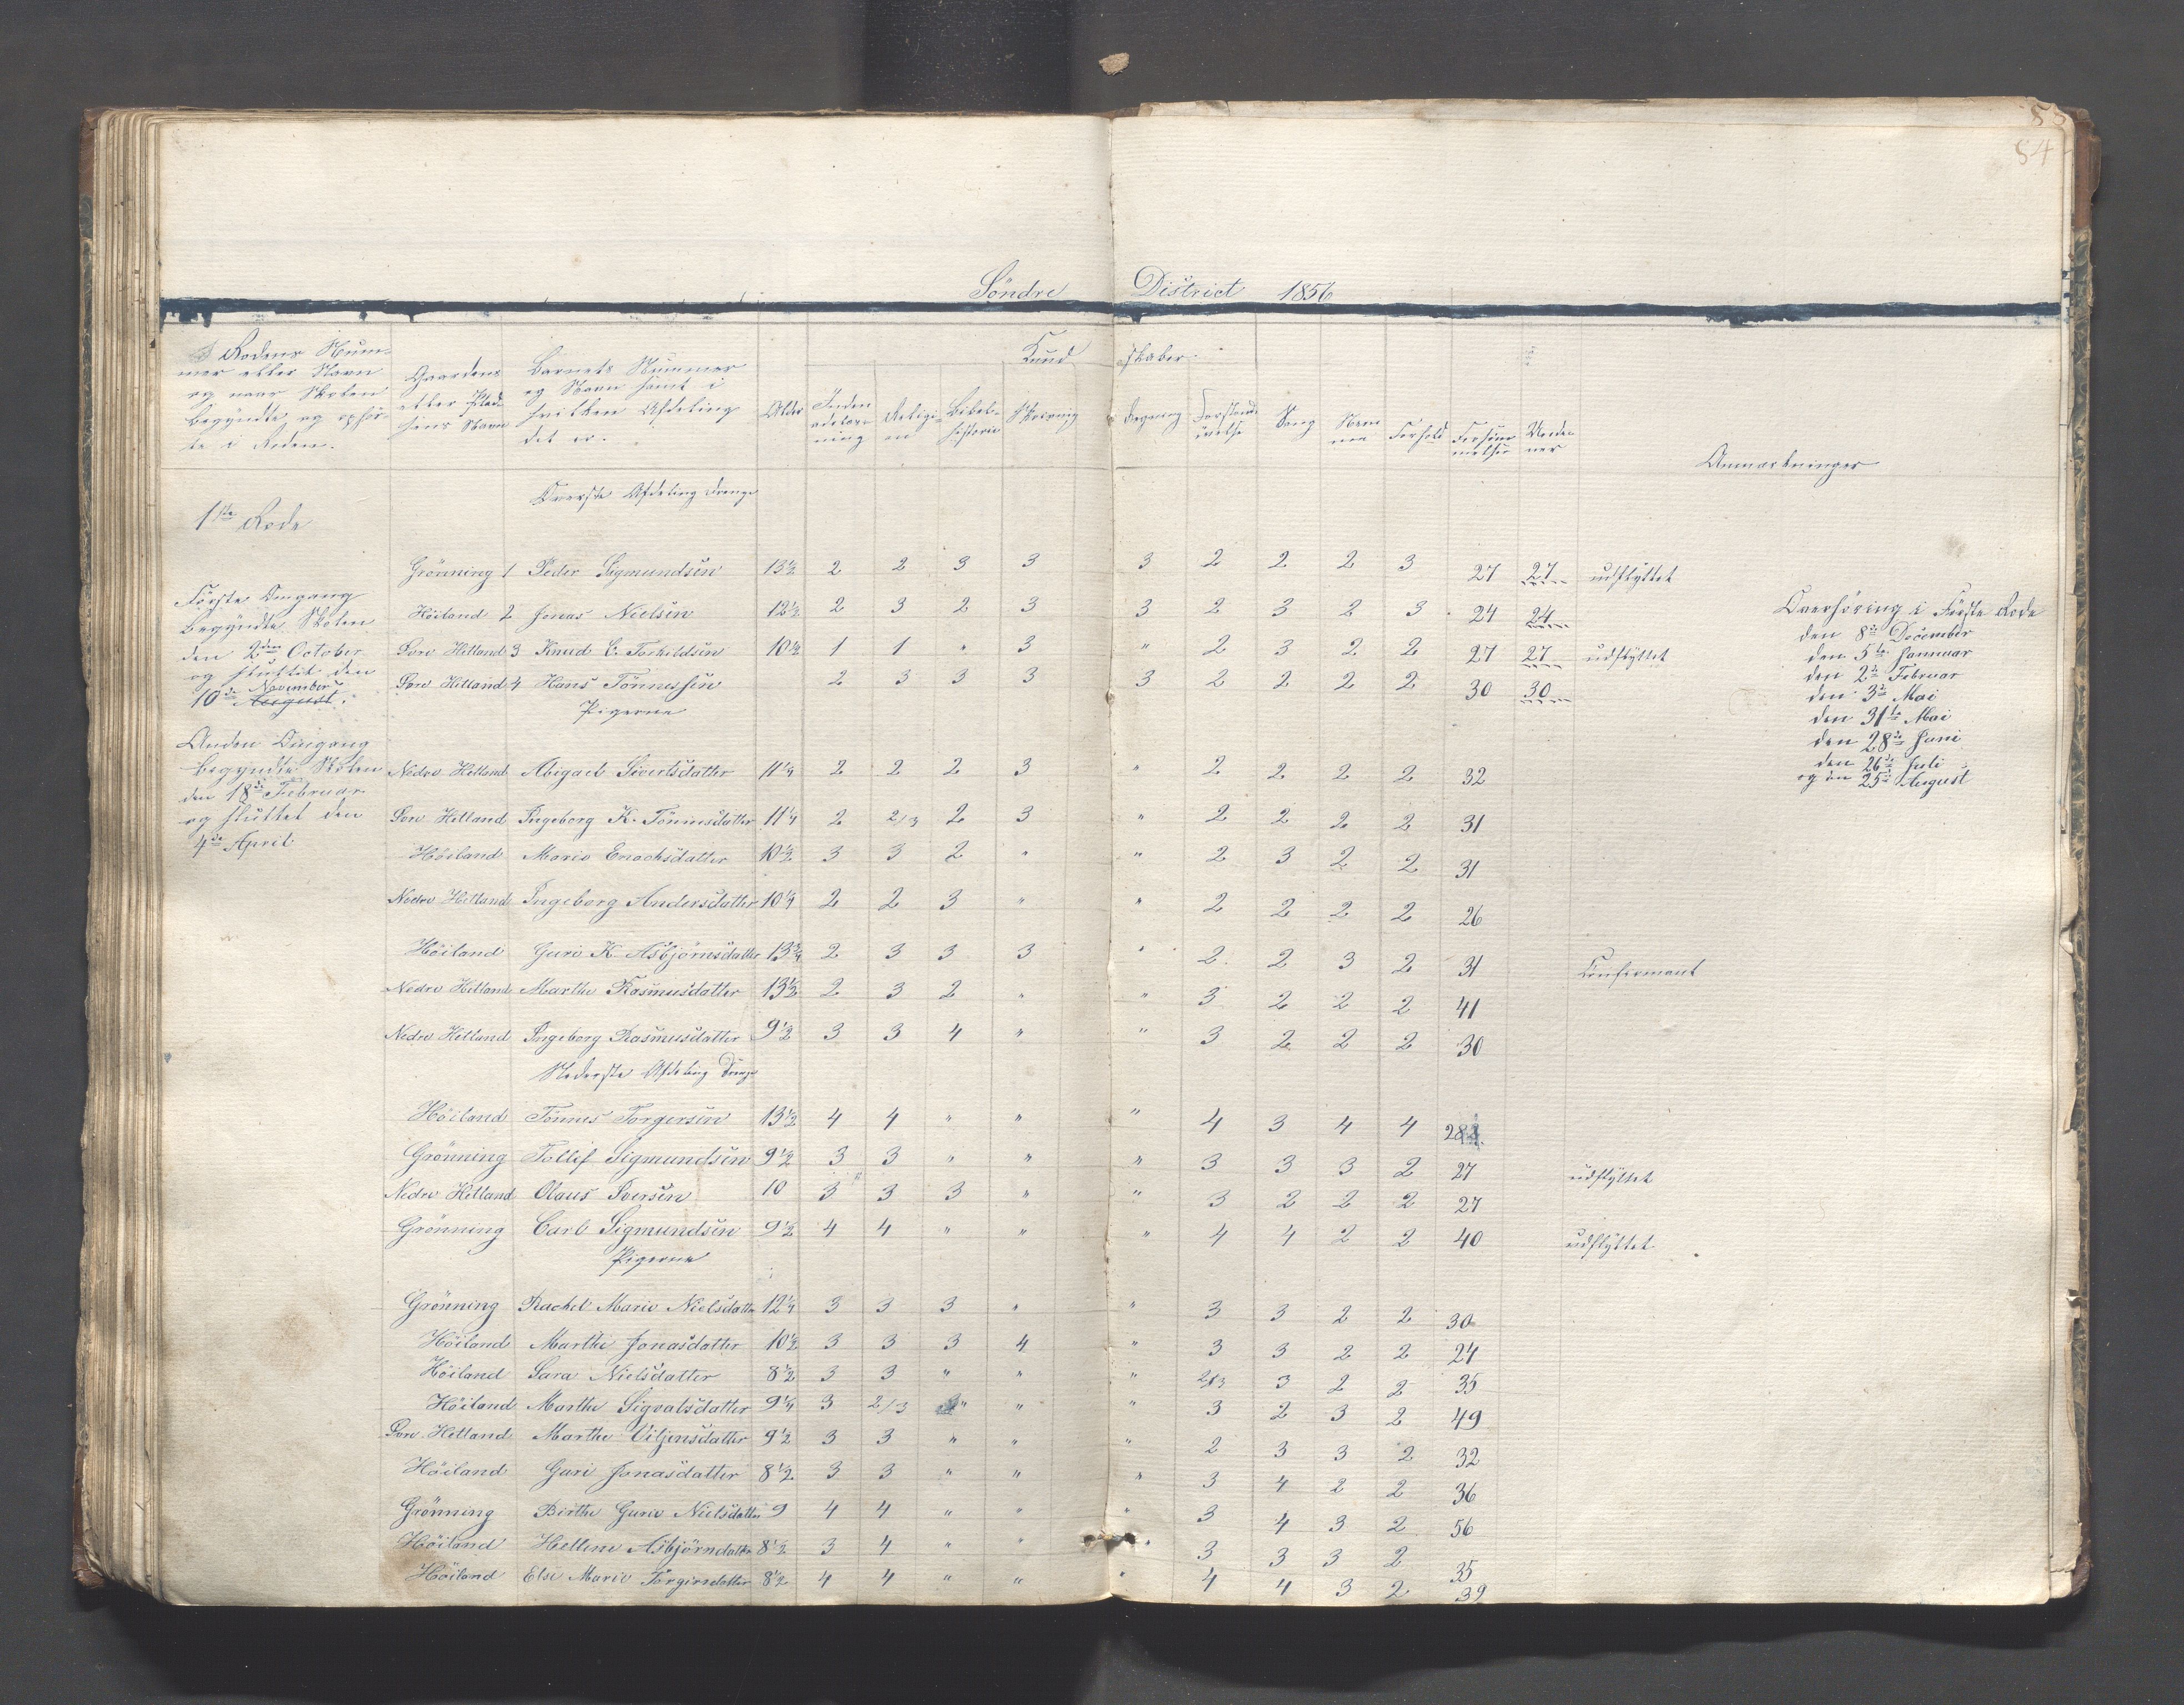 83
84
Söndre District 1856
Rodens Num-
mer eller Navn
og naar Skolen
begyndte og ophör-
te i Roden.
Gaardens
eller Plad-
sens Navn
Barnets Nummer
og Navn samt i
hvilken Afdeling
det er.
Alder
Kundskaber
Inden-
adslæs-
ning
Religi-
on
Bibel-
historie
Skrivning
Regning
Forstands-
övelse
Sang
Nem-
me
Forhold
Forsöm-
melser
Anmærkninger
1ste Rode
Överste Afdeling Drenge
Grönning 1 Peder Sigmundsen 13½ 2 2 3 3 3 2 2 2 3 27 27 udflyttet
Höiland 2 Jonas Nielsen 12½ 2 3 2 3 3 2 3 2 3 24 24
Övre Hetland 3 Knud E. Torkildsen 10½ 1 1 " 3 " 2 3 2 2 27 27 udflyttet
Övre Hetland 4 Hans Tönnessen 2 3 3 3 3 2 2 2 2 30 30
Pigerne
Nedre Hetland Abigael Sivertsdatter 11¼ 2 2 2 3 " 2 2 2 2 32
Övre Hetland Ingeborg K. Tönnesdatter 11¼ 2 2/3 2 3 " 2 2 2 2 31
Höiland Marie Enochsdatter 10½ 3 3 2 " " 2 3 2 2 31
Nedre Hetland Ingeborg Andersdatter 10¼ 2 2 3 " " 2 2 2 2 26
Höiland Guri K Asbjörnsdatter 13¾ 2 3 3 3 " 2 2 3 2 31 Confirmant
Nedre Hetland Marthe Rasmusdatter 13½ 2 3 2 " " 3 2 2 2 41
Nedre Hetland Ingeborg Rasmusdatter 9½ 3 3 4 " " 3 2 2 2 30
Nederste Afdeling Drenge
Höiland Tönnes Torgersen 13½ 4 4 " " " 4 3 4 4 28
Grönning Tollif Sigmundsen 9½ 3 3 " " " 3 3 3 2 27 udflyttet
Nedre Hetland Olaus Iversen 10 3 3 3 " " 3 2 2 2 27
Grönning Carl Sigmundsen 9½ 4 4 " " " 4 4 2 2 40 udflyttet
Pigerne
Grönning Rachel Marie Nielsdatter 12¼ 3 3 3 " " 3 3 2 2 30
Höiland Marthe Jonasdatter 10½ 3 3 3 4 " 3 3 2 2 24
Höiland Sara Nielsdatter 8½ 3 3 " " " 2/3 3 2 2 35
Höiland Marthe Sigvalsdatter 9¼ 3 2/3 " " " 3 2 3 2 49
Övre Hetland Marthe Viljensdatter 9½ 3 3 " " " 2 3 3 2 32
Höiland Guri Jonasdatter 8½ 3 3 " " " 3 4 2 2 36
Grönning Birthe Gurie Nielsdatter 9 4 4 " " " 3 4 3 2 56
Höiland Hellene Asbjörndatter 8½ 3 4 " " " 3 3 3 2 35
Höiland Elsi Marie Torgersdatter 8½ 4 4 " " " 4 4 3 2 39
Förste Omgang
begyndte Skolen
den 2den October
og sluttet den
10de November August.
Anden Omgang
begyndte Skolen
den 18de Februar
og sluttet den
4de April
Overhöring i Förste Rode
den 8de December
den 5te Januar
den 2de Februar
den 3de Mai
den 31te Mai
den 28de Juni
den 26de Juli
og den 25de August